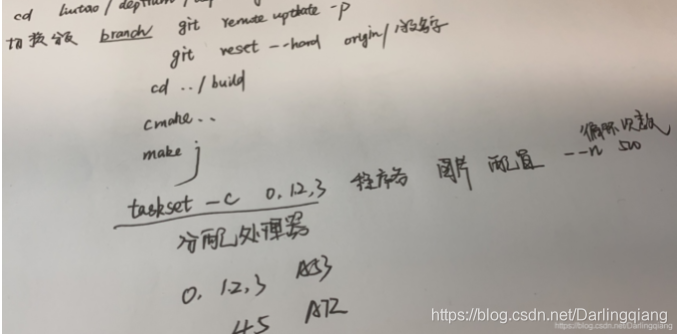 cd liutao/depthum/
切换分版 branch git remote update -p
git reset --hard origin/的名字
cd ../build
cmake ..
make j
循环次数
taskset -c 0,1,2,3 程序名 图片 配置 --n 500
分配处理器
0, 1,2,3 A53
4 5 A72
https://blog.csdn.net/Darlingqiang